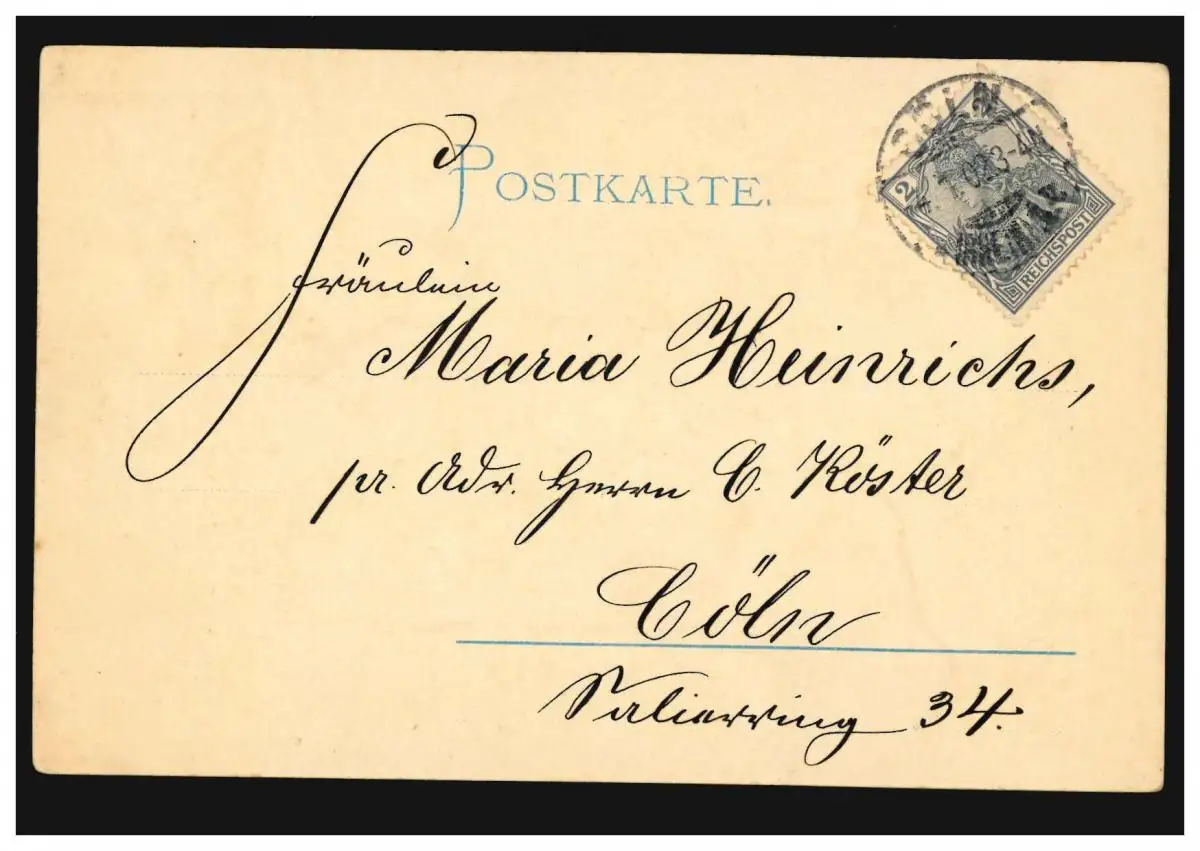 POSTKARTE.
2
REICHSPOST
Fräulein
Maria Heinrichs,
pr. Adr. Herrn C. Köster
Cöln
Salierring 34.